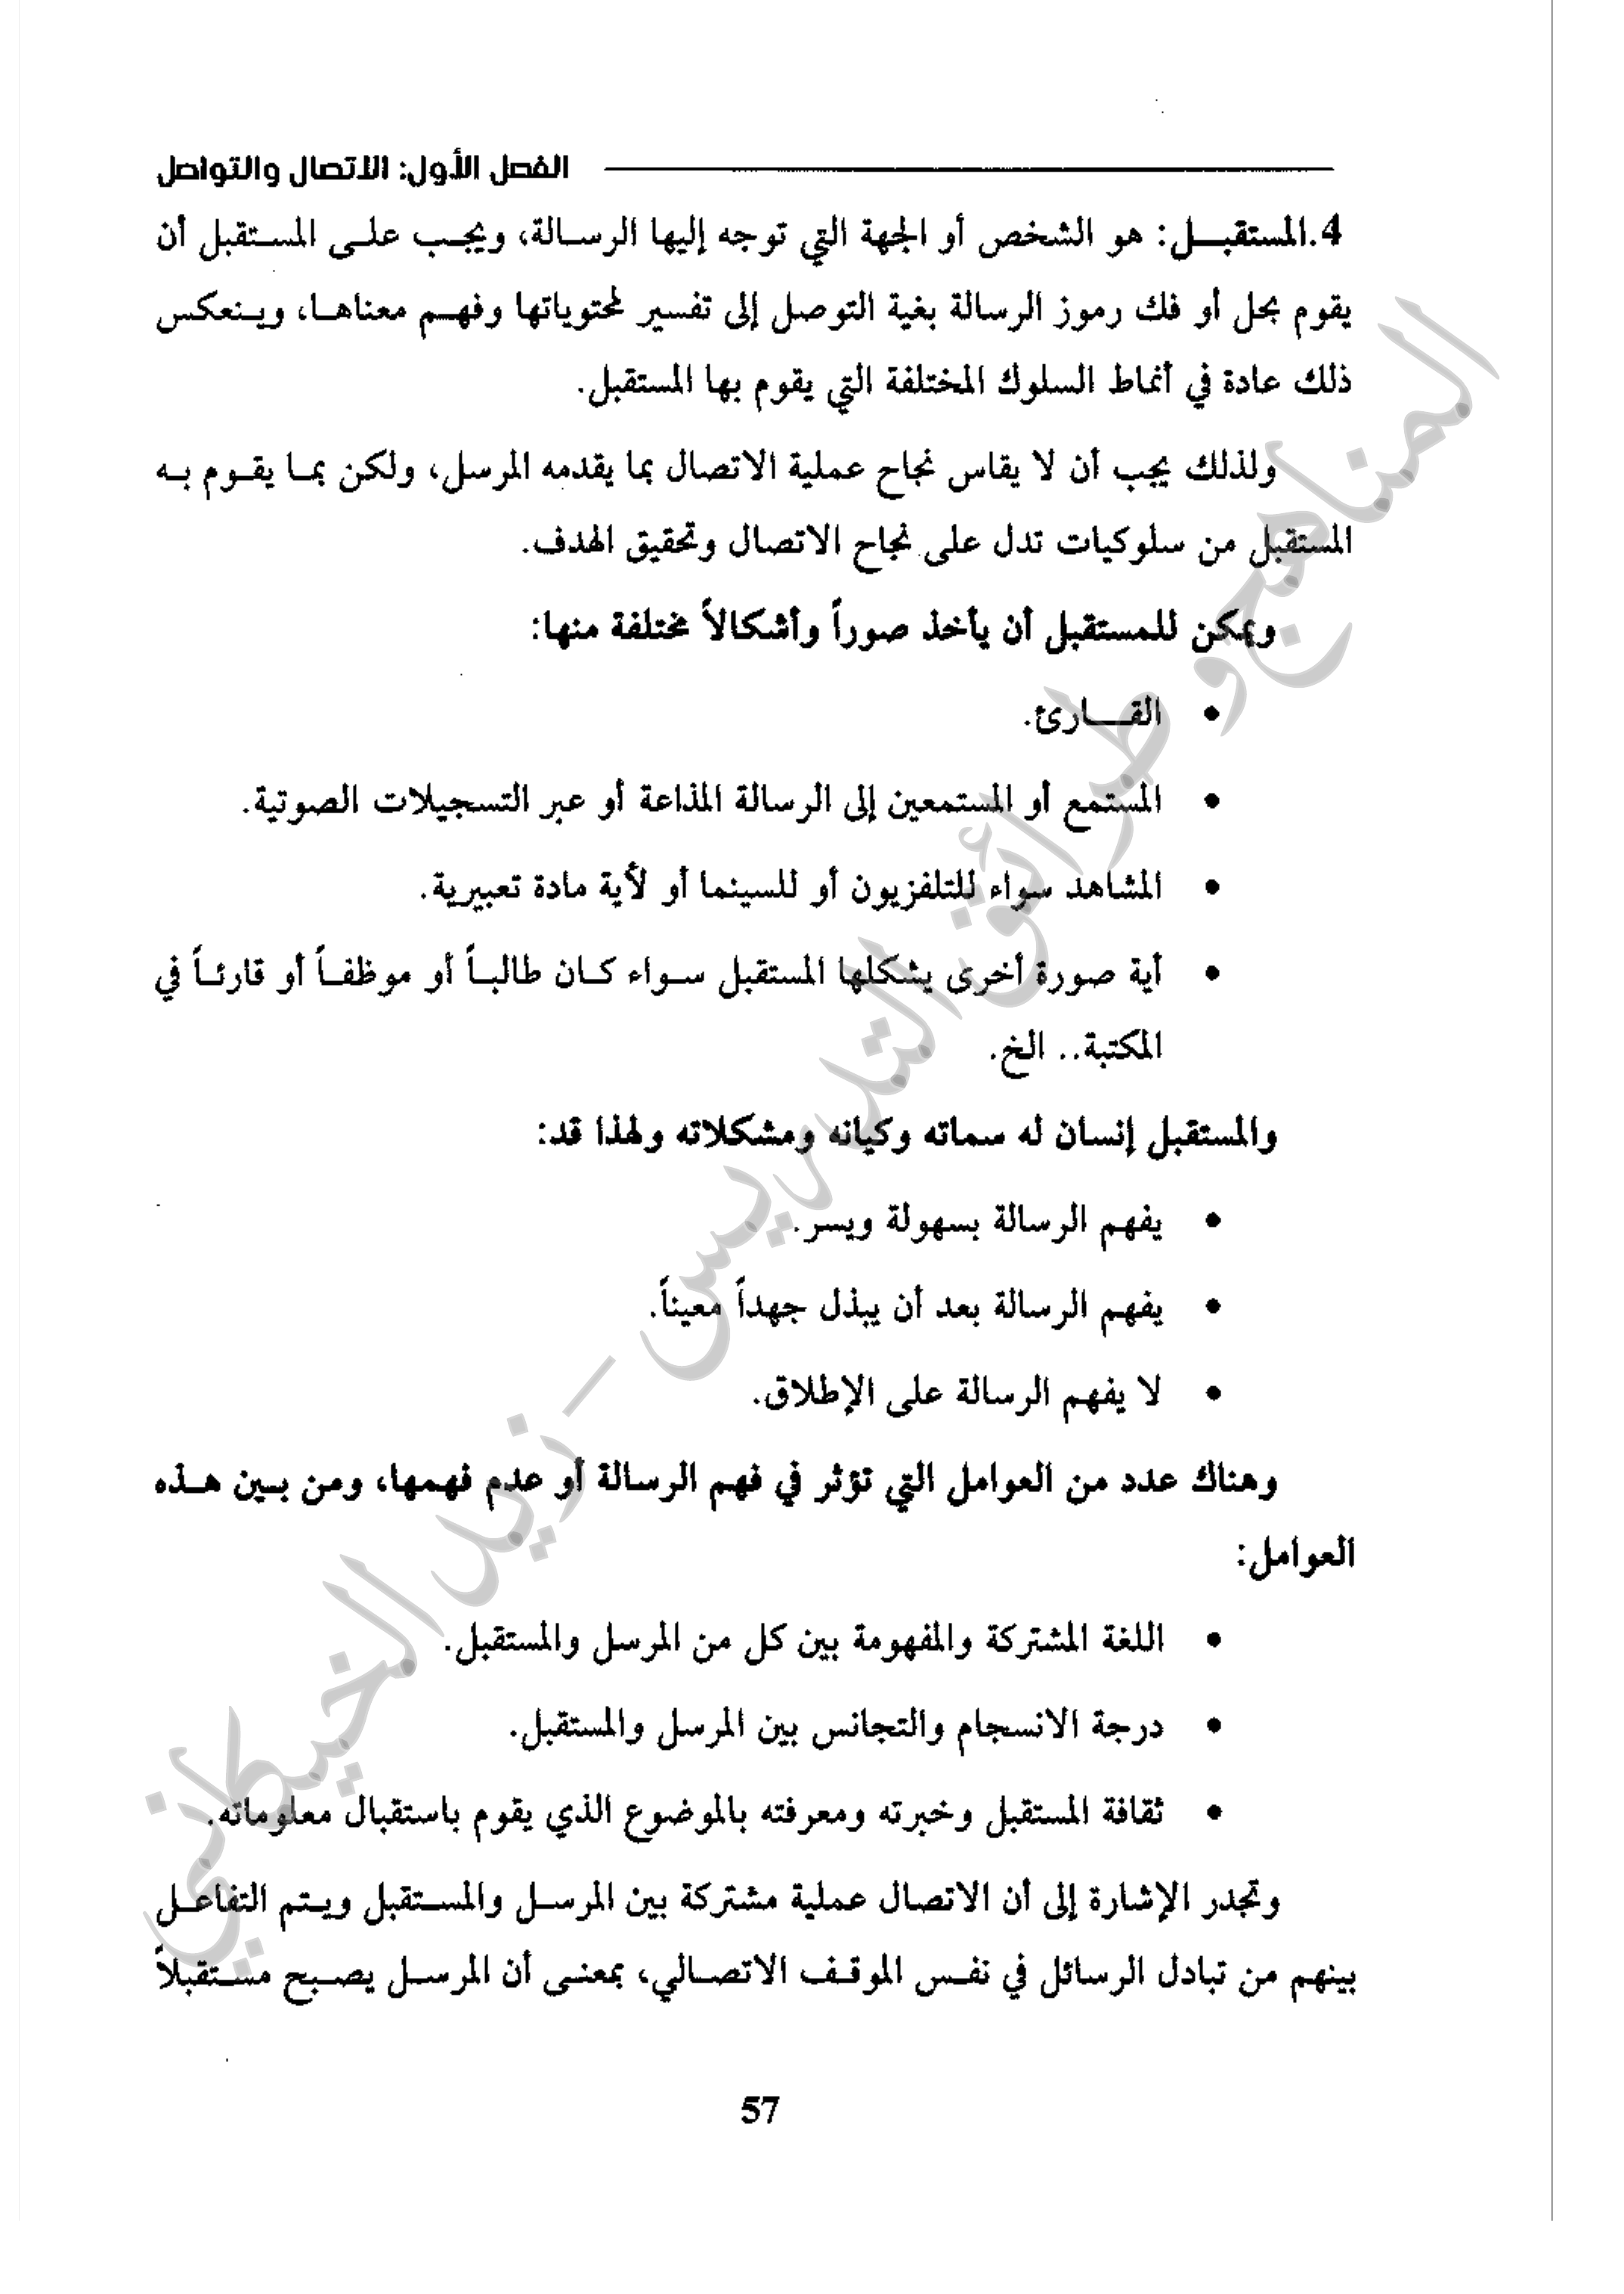 الفصل الأول: الاتصال والتواصل
4.المستقبــل: هو الشخص أو الجهة التي توجه إليها الرسالة، ويجب على المستقبل أن
يقوم بحل أو فك رموز الرسالة بغية التوصل إلى تفسير لمحتوياتها وفهم معناها، وينعكس
ذلك عادة في أنماط السلوك المختلفة التي يقوم بها المستقبل.
ولذلك يجب أن لا يقاس نجاح عملية الاتصال بما يقدمه المرسل، ولكن بما يقوم به
المستقبل من سلوكيات تدل على نجاح الاتصال وتحقيق الهدف.
ويمكن للمستقبل أن يأخذ صوراً وأشكالاً مختلفة منها:
• القــارئ.
• المستمع أو المستمعين إلى الرسالة المذاعة أو عبر التسجيلات الصوتية.
• المشاهد سواء للتلفزيون أو للسينما أو لأية مادة تعبيرية.
• أية صورة أخرى يشكلها المستقبل سواء كان طالباً أو موظفاً أو قارئاً في
المكتبة.. الخ.
والمستقبل إنسان له سماته وكيانه ومشكلاته ولهذا قد:
• يفهم الرسالة بسهولة ويسر.
• يفهم الرسالة بعد أن يبذل جهداً معيناً.
• لا يفهم الرسالة على الإطلاق.
وهناك عدد من العوامل التي تؤثر في فهم الرسالة أو عدم فهمها، ومن بين هذه
العوامل:
• اللغة المشتركة والمفهومة بين كل من المرسل والمستقبل.
• درجة الانسجام والتجانس بين المرسل والمستقبل.
• ثقافة المستقبل وخبرته ومعرفته بالموضوع الذي يقوم باستقبال معلوماته.
وتجدر الإشارة إلى أن الاتصال عملية مشتركة بين المرسل والمستقبل ويتم التفاعل
بينهم من تبادل الرسائل في نفس الموقف الاتصالي، بمعنى أن المرسل يصبح مستقبلاً
57
المناهج و طرائق التدريس – زيد الخيكاني